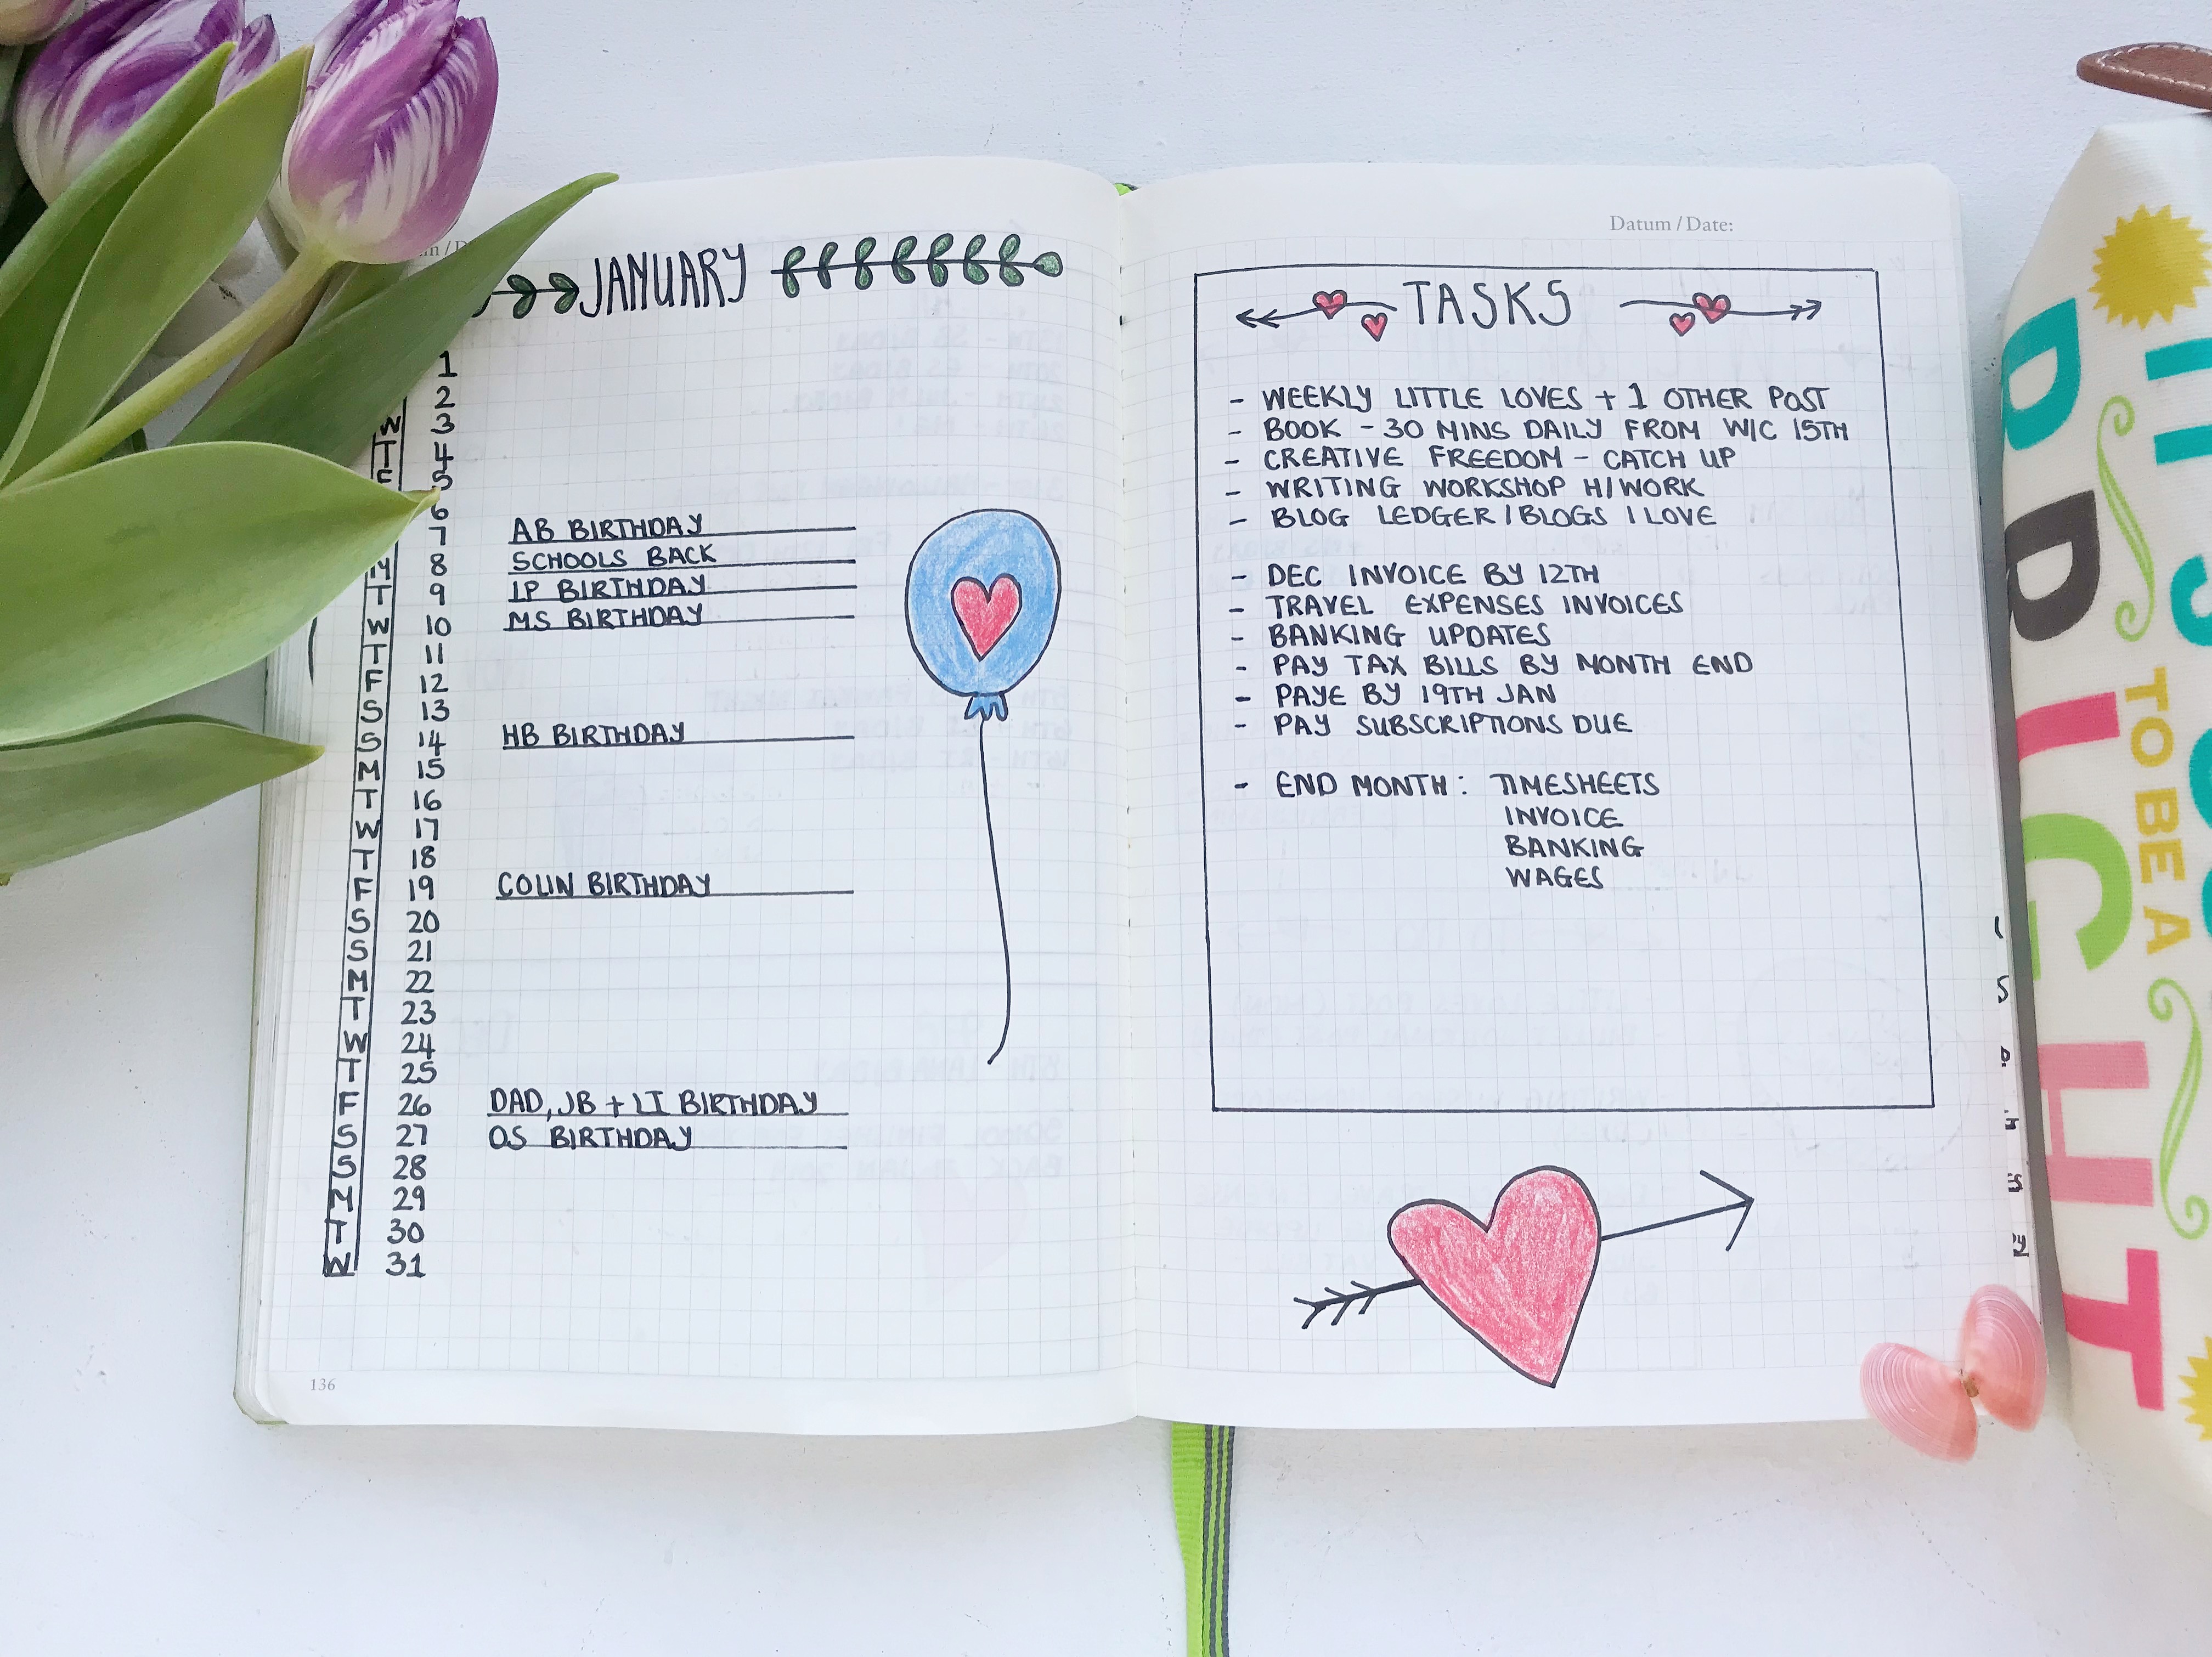 JANUARY
1
2
W 3
T 4
F 5
6
7 AB BIRTHDAY
M 8 SCHOOLS BACK
T 9 LP BIRTHDAY
W 10 MS BIRTHDAY
T 11
F 12
S 13
S 14 HB BIRTHDAY
M 15
T 16
W 17
T 18
F 19 COLIN BIRTHDAY
S 20
S 21
M 22
T 23
W 24
T 25
F 26 DAD, JB + LI BIRTHDAY
S 27 OS BIRTHDAY
S 28
M 29
T 30
W 31
136
Datum / Date:
TASKS
- WEEKLY LITTLE LOVES + 1 OTHER POST
- BOOK - 30 MINS DAILY FROM W/C 15TH
- CREATIVE FREEDOM - CATCH UP
- WRITING WORKSHOP H/WORK
- BLOG LEDGER / BLOGS I LOVE
- DEC INVOICE BY 12TH
- TRAVEL EXPENSES INVOICES
- BANKING UPDATES
- PAY TAX BILLS BY MONTH END
- PAYE BY 19TH JAN
- PAY SUBSCRIPTIONS DUE
- END MONTH: TIMESHEETS
INVOICE
BANKING
WAGES
TO BE A
BRIGHT